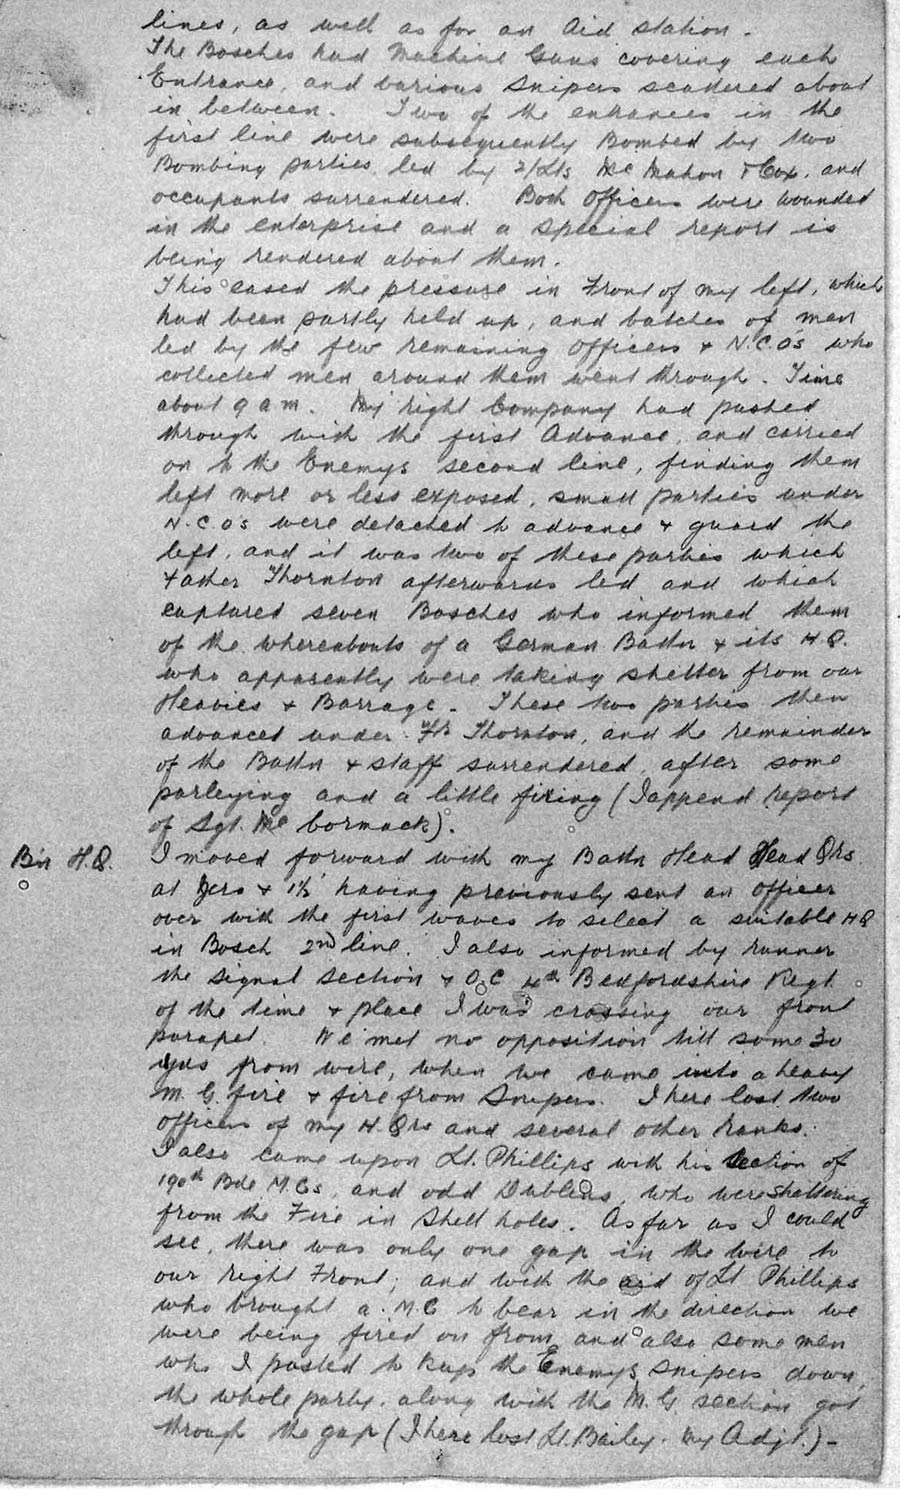 lines, as well as for an Aid station.
The Bosches had Machine Guns covering each
Entrance, and various Snipers scattered about
in between. Two of the entrances in the
first line were subsequently Bombed by two
Bombing parties led by 2/Lts McMahon & Cox, and
occupants surrendered. Both Officers were wounded
in the enterprise and a special report is
being rendered about them.
This eased the pressure in Front of my left, which
had been partly held up, and batches of men
led by the few remaining Officers & N.C.O's who
collected men around them went through. Time
about 9 am. My right Company had pushed
through with the first Advance, and carried
on to the Enemys second line, finding them
left more or less exposed, small parties under
N.C.O's were detached to advance & guard the
left, and it was two of these parties which
Father Thornton afterwards led and which
captured seven Bosches who informed them
of the whereabouts of a German Battn & its H.Q.
who apparently were taking shelter from our
Heavies & Barrage. These two parties then
advanced under Fr Thornton, and the remainder
of the Battn & staff surrendered after some
parleying and a little firing (I append report
of Sgt. McCormack).
Bn H.Q. I moved forward with my Battn Head Head Qrs
at Zero & 1½' having previously sent an officer
over with the first waves to select a suitable HQ
in Bosch 2nd line. I also informed by runner
the signal section & O.C 4th Bedfordshire Regt
of the time & place I was crossing our front
parapet. We met no opposition till some 30
yds from wire, when we came into a heavy
M.G. fire & fire from Snipers. I here lost two
officers of my H.Qrs and several other ranks.
I also came upon Lt. Phillips with his section of
190th Bde M.Gs, and odd Dublins, who were sheltering
from the Fire in Shell holes. As far as I could
see, there was only one gap in the wire to
our right Front; and with the aid of Lt Phillips
who brought a M.G to bear in the direction we
were being fired on from, and also some men
who I posted to keep the Enemy's snipers down,
the whole party, along with the M.G section got
through the gap (I here lost Lt. Bailey. My Adjt.) -